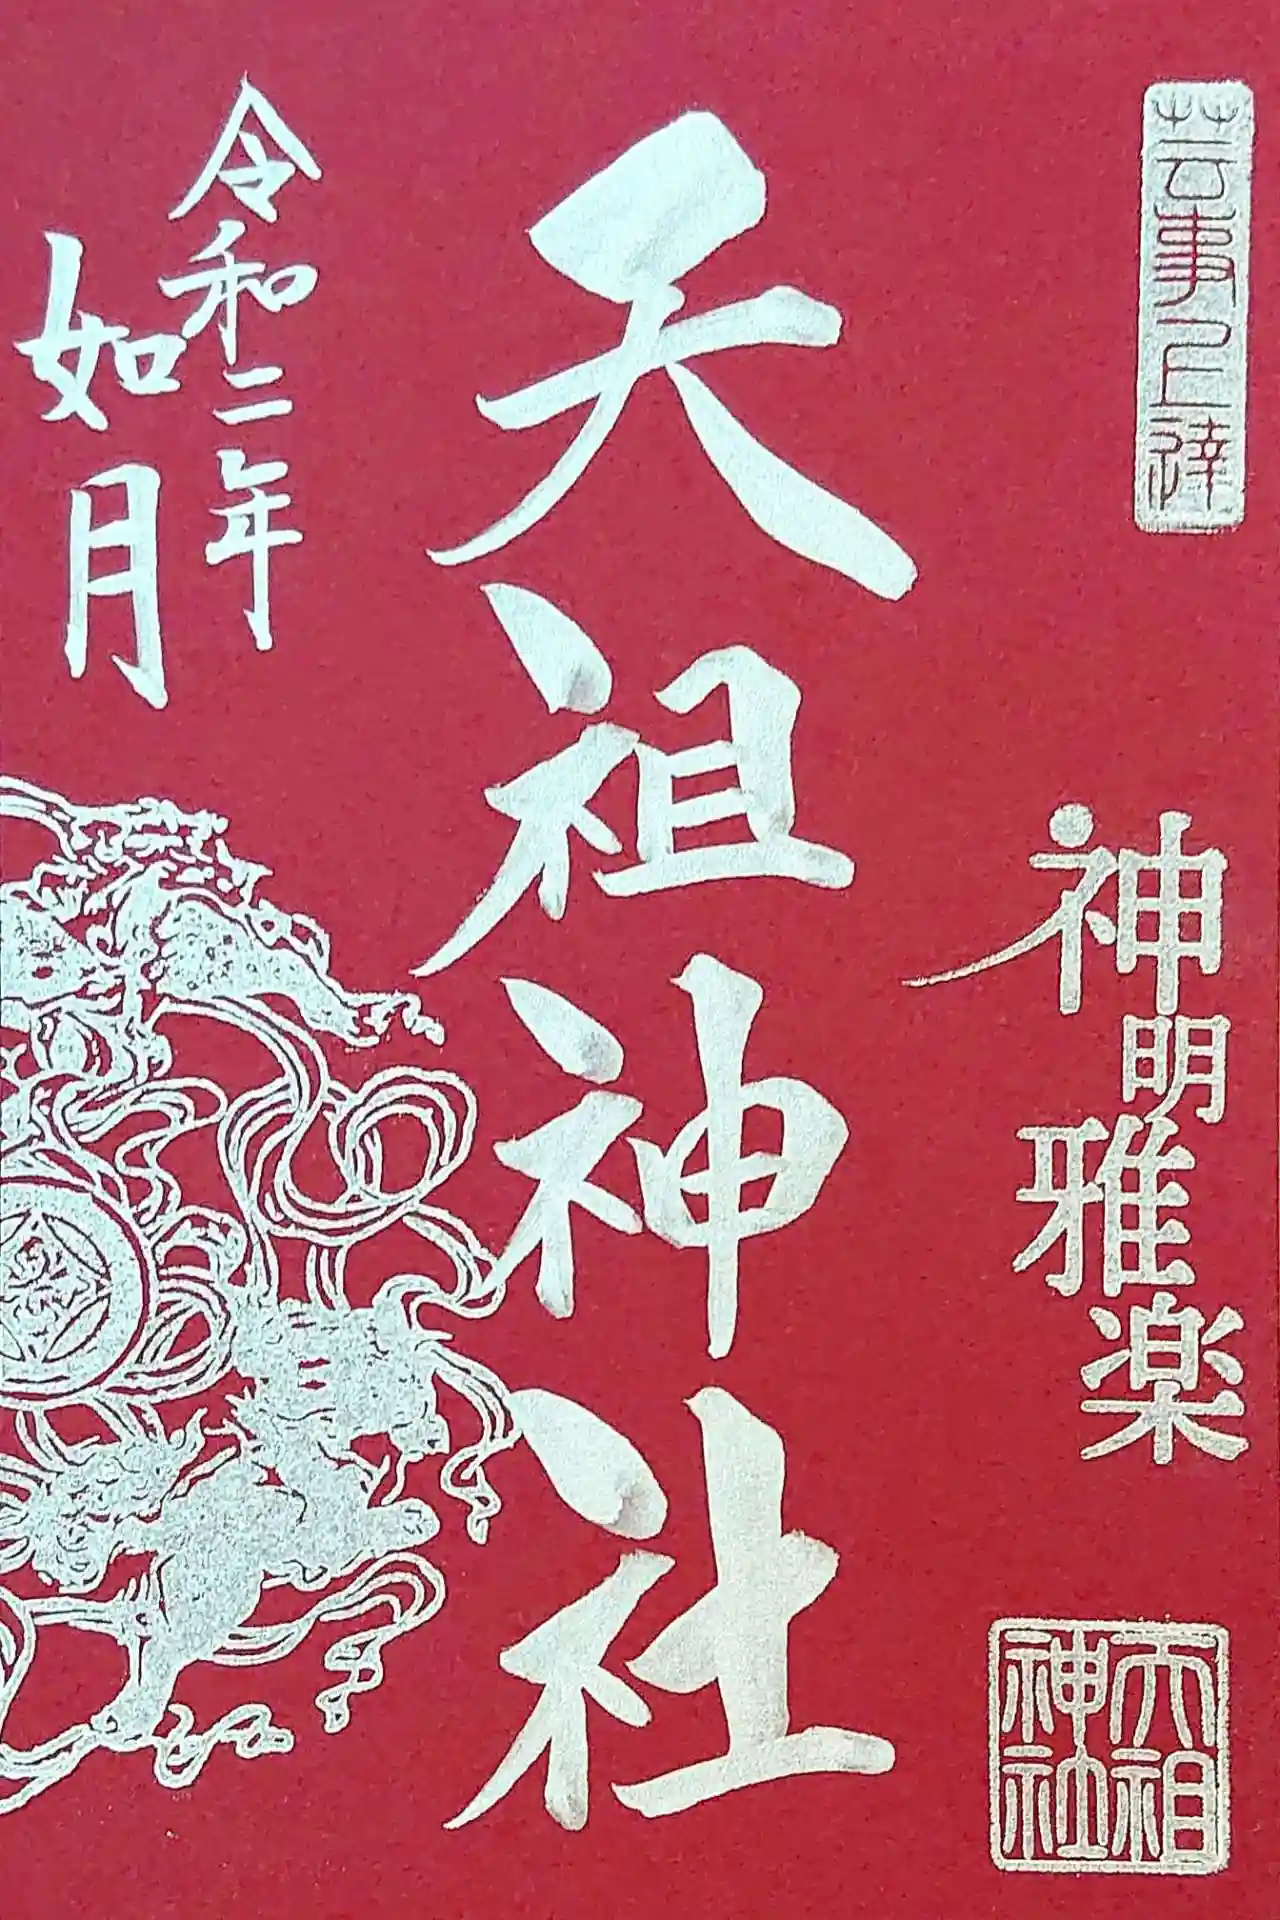 芸事上達
神明雅楽
天祖神社
天祖神社
令和二年
如月